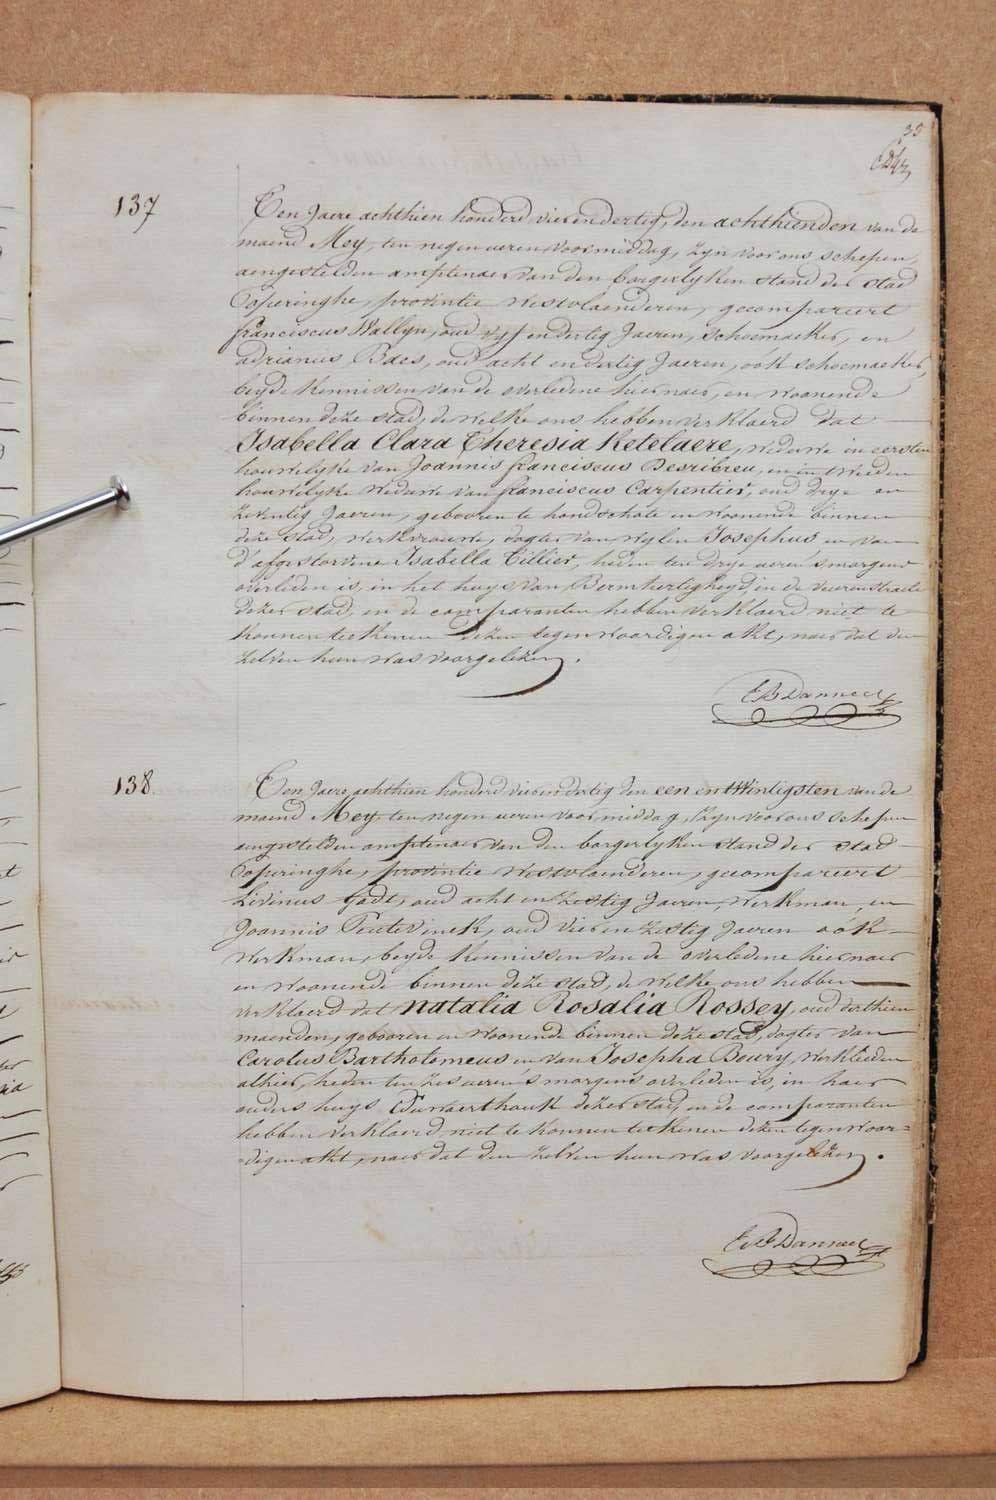 35
137
Ten Jaere achthien honderd vierendertig, den achthienden van de
maend Mey, ten negen ueren voormiddag, zyn voor ons schepen,
aengestelden amptenaer van den borgerlyken stand der stad
Poperinghe, provintie Westvlaenderen, gecompareert
franciscus Wallyn, oud vyf en dertig Jaeren, Schoemaeker, en
adrianus Baes, oud acht en dertig Jaeren, oók schoemaeker,
beyde kennissen van de overledene hiernaer, en woonende
binnen deze stad, de welke ons hebben verklaerd dat
Isabella Clara Theresia Ketelaere, weduwe in eersten
houwelyke van Joannis franciscus Desribreu, en in tweeden
houwelyke weduwe van franciscus Carpentier, oud drye en
zeventig Jaeren, gebooren te hondschote en woonende binnen
deze stad, werkvrouwe, dogter van wylen Josephus en van
d'afgestorvene Isabella Tillier, heden ten drye ueren 's morgens
overleden is, in het huys van Bermhertigheyd, in de veurenstraete
dezer stad, en de comparanten hebben verklaerd niet te
konnen teekenen dezen tegenwoordigen akt, naer dat den
zelven hun was voorgelezen.
E B Danneel
138
Ten Jaere achthien honderd vierendertig den een en twintigsten van de
maend Mey, ten negen ueren voormiddag, zyn voor ons schepen
aengestelden amptenaer van den borgerlyken stand der stad
Poperinghe, provintie Westvlaenderen, gecompareert
Livinus Gadt, oud acht en zestig Jaeren, werkman, en
Joannis Teutevinck, oud vier en zestig Jaeren oók
werkman, beyde kennissen van de overledene hiernaer
en woonende binnen deze stad, de welke ons hebben
verklaerd dat natalia Rosalia Rossey, oud derthien
maenden, gebooren en woonende binnen deze stad, dogter van
Carolus Bartholomeus en van Josepha Beury, werklieden
alhier, heden ten zes ueren 's morgens overleden is, in haer
ouders huys, dezer stad, en de comparanten
hebben verklaerd niet te konnen teekenen dezen tegenwoor=
=digen akt, naer dat den zelven hun was voorgelezen.
E B Danneel